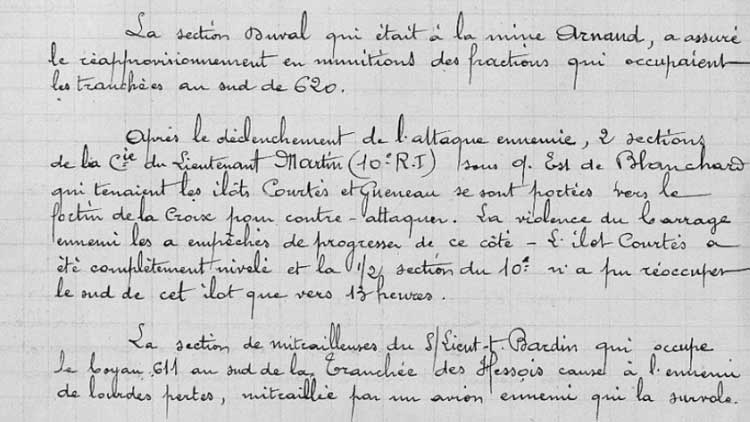 La section Duval qui était à la mine Arnaud, a assuré
le réapprovisionnement en munitions des fractions qui occupaient
les tranchées au sud de 620.
Après le déclenchement de l'attaque ennemie, 2 sections
de la Cie du Lieutenant Martin (10e R.I) sous q. Est de Blanchard
qui tenaient les ilôts Courtés et Gueneau se sont portées vers le
fortin de la Croix pour contre-attaquer. La violence du barrage
ennemi les a empêchés de progresser de ce côté - L'ilot Courtés a
été complètement nivelé et la 1/2 section du 10e n'a pu réoccuper
le sud de cet ilot que vers 13 heures.
La section de mitrailleuses du S/Lieut-t. Bardin qui occupe
le boyau 611 au sud de la Tranchée des Hessois cause à l'ennemi
de lourdes pertes, mitraillée par un avion ennemi qui la survole.